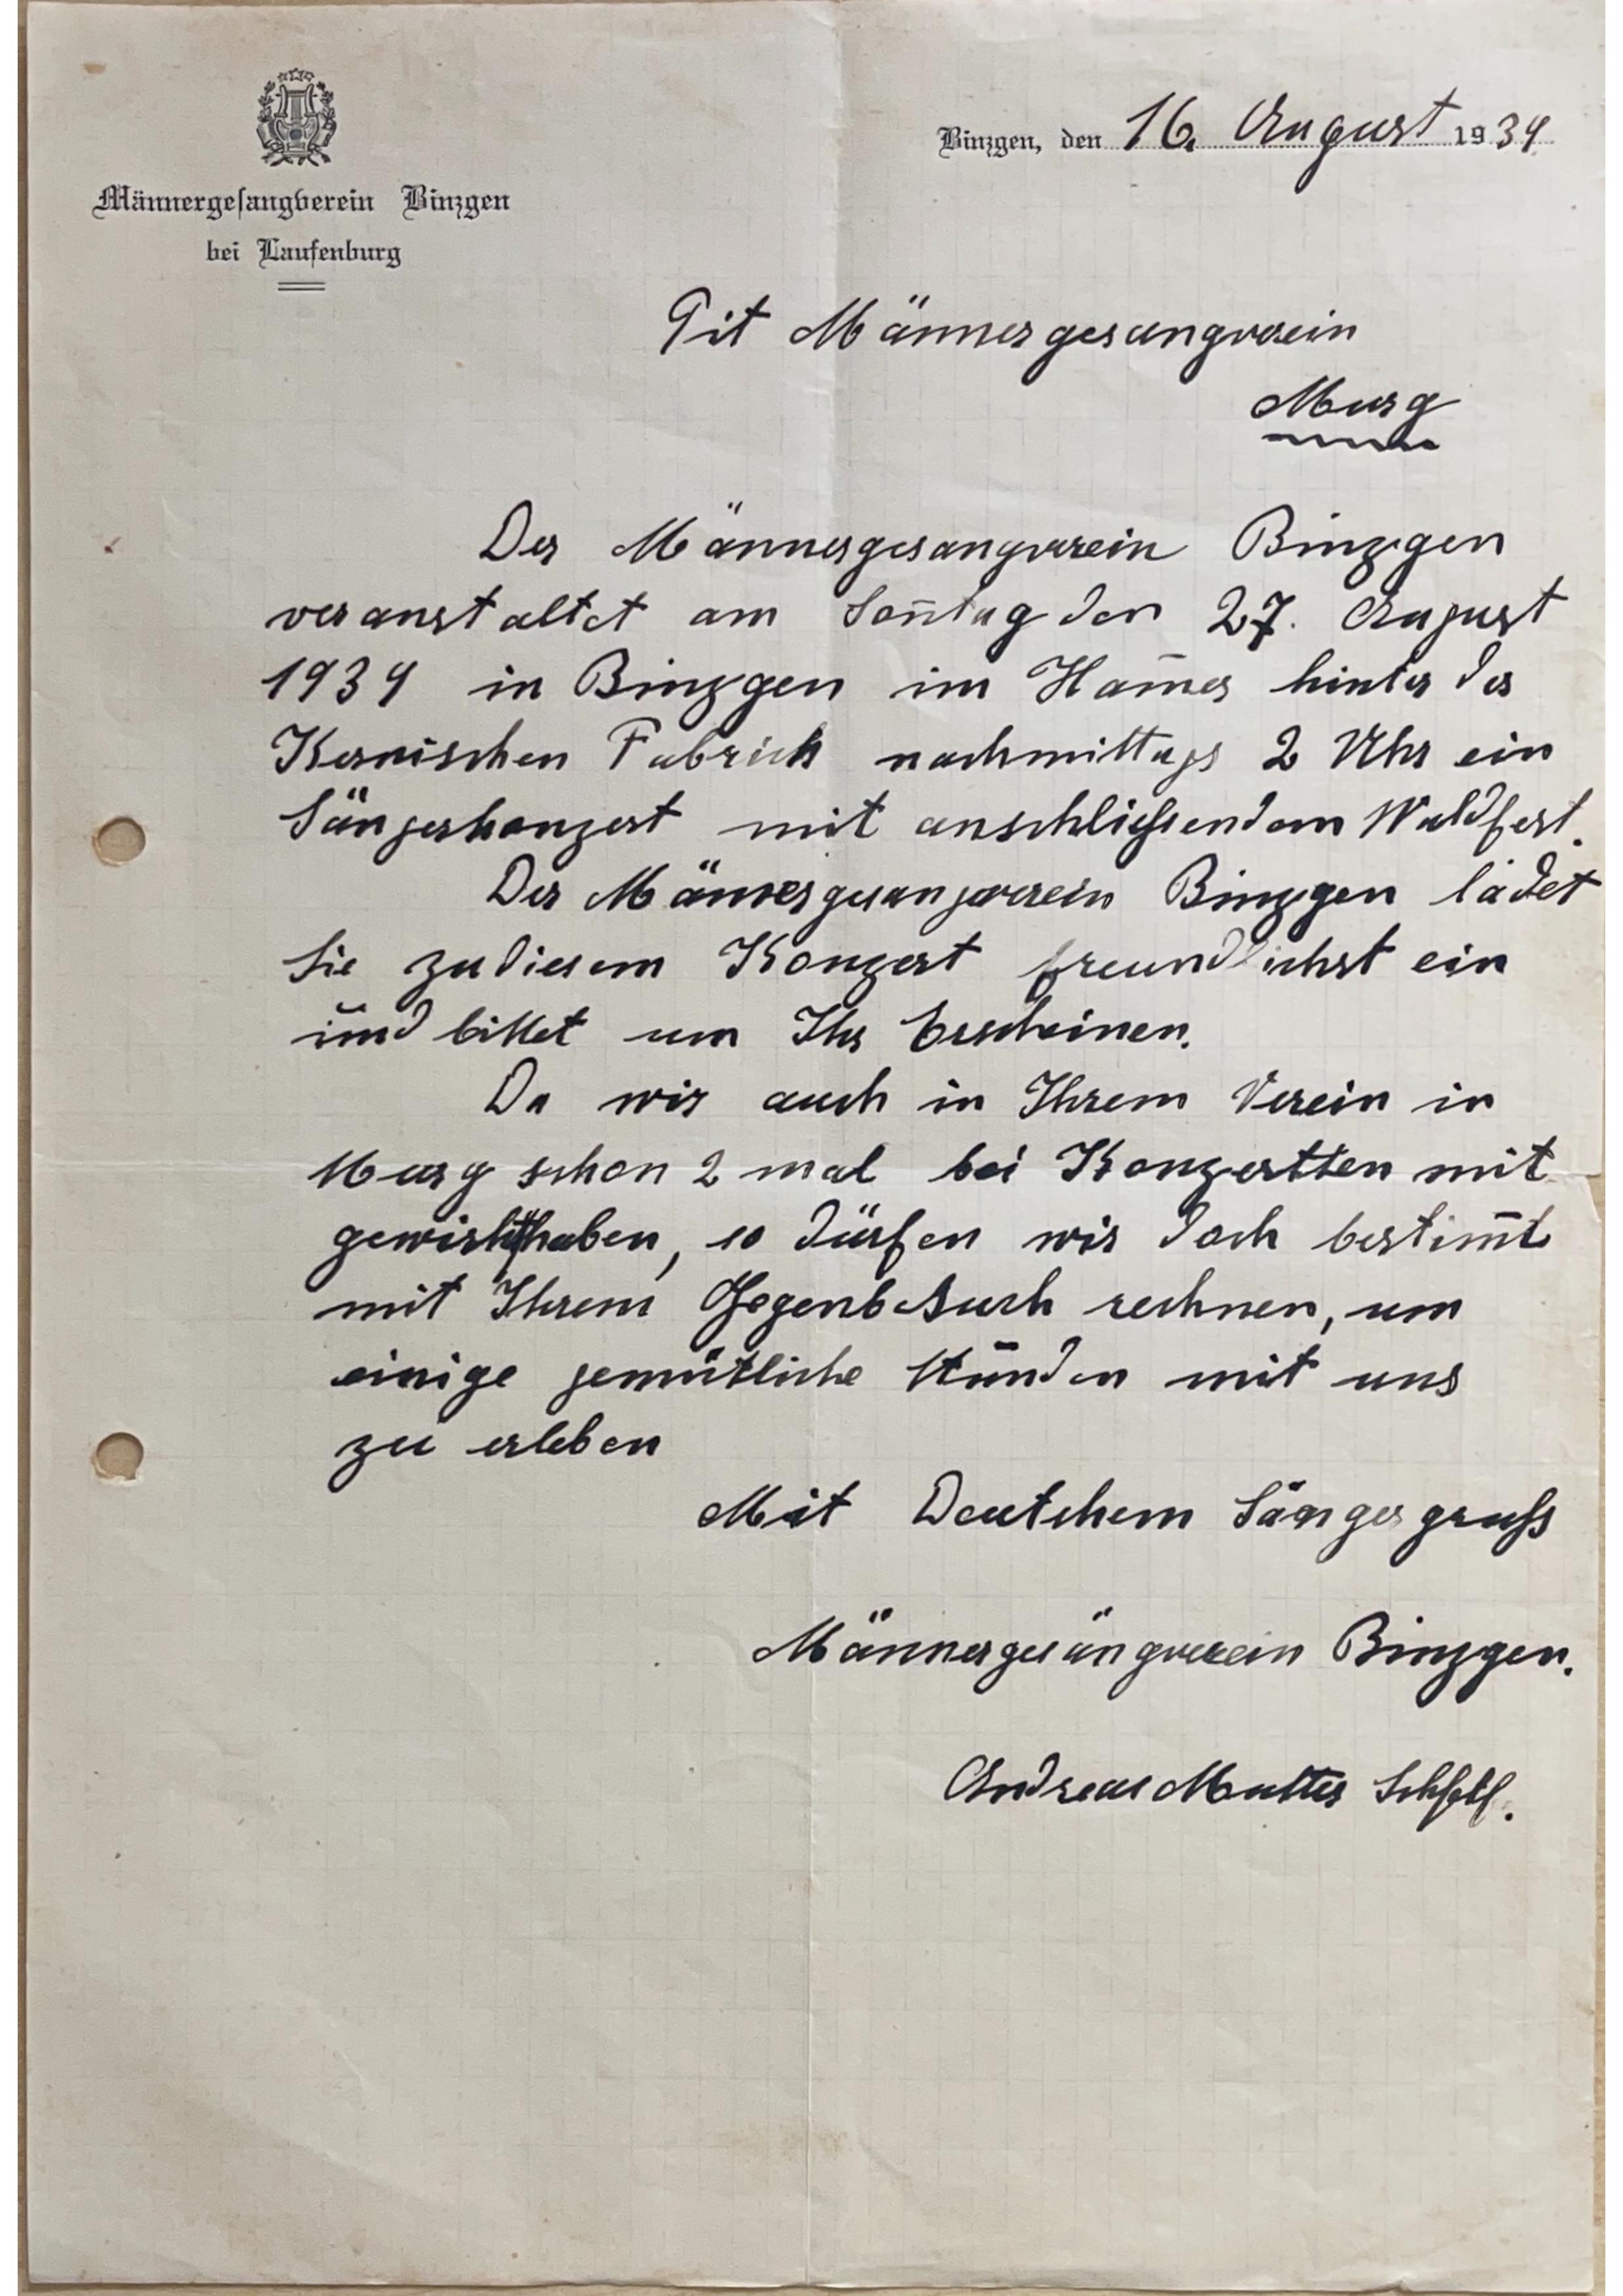 Männergesangverein Binzgen
bei Laufenburg
Binzgen, den 16. August 1939
Tit Männergesangverein
Murg
Der Männergesangverein Binzgen
veranstaltet am Son̄tag den 27. August
1939 in Binzgen im Ham̄er hinter der
Kernischen Fabrick nachmittags 2 Uhr ein
Sängerkonzert mit anschließendem Waldfest.
Der Männergesangverein Binzgen ladet
Sie zu diesem Konzert freundlichst ein
und bittet um Ihr Erscheinen.
Da wir auch in Ihrem Verein in
Murg schon 2 mal bei Konzertten mit
gewirkt haben, so dürfen wir doch bestim̄t
mit Ihrem Gegenbesuch rechnen, um
einige gemütliche Stunden mit uns
zu erleben
Mit Deutchem Sängergruß
Männergesangverein Binzgen.
Andreas Mutter Schftf.